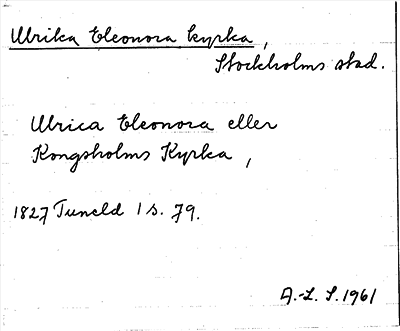 Ulrika Eleonora kyrka,
Stockholms stad.
Ulrica Eleonora eller
Kongsholms Kyrka,
1827 Tuneld 1 s. 79.
A.-L. S. 1961